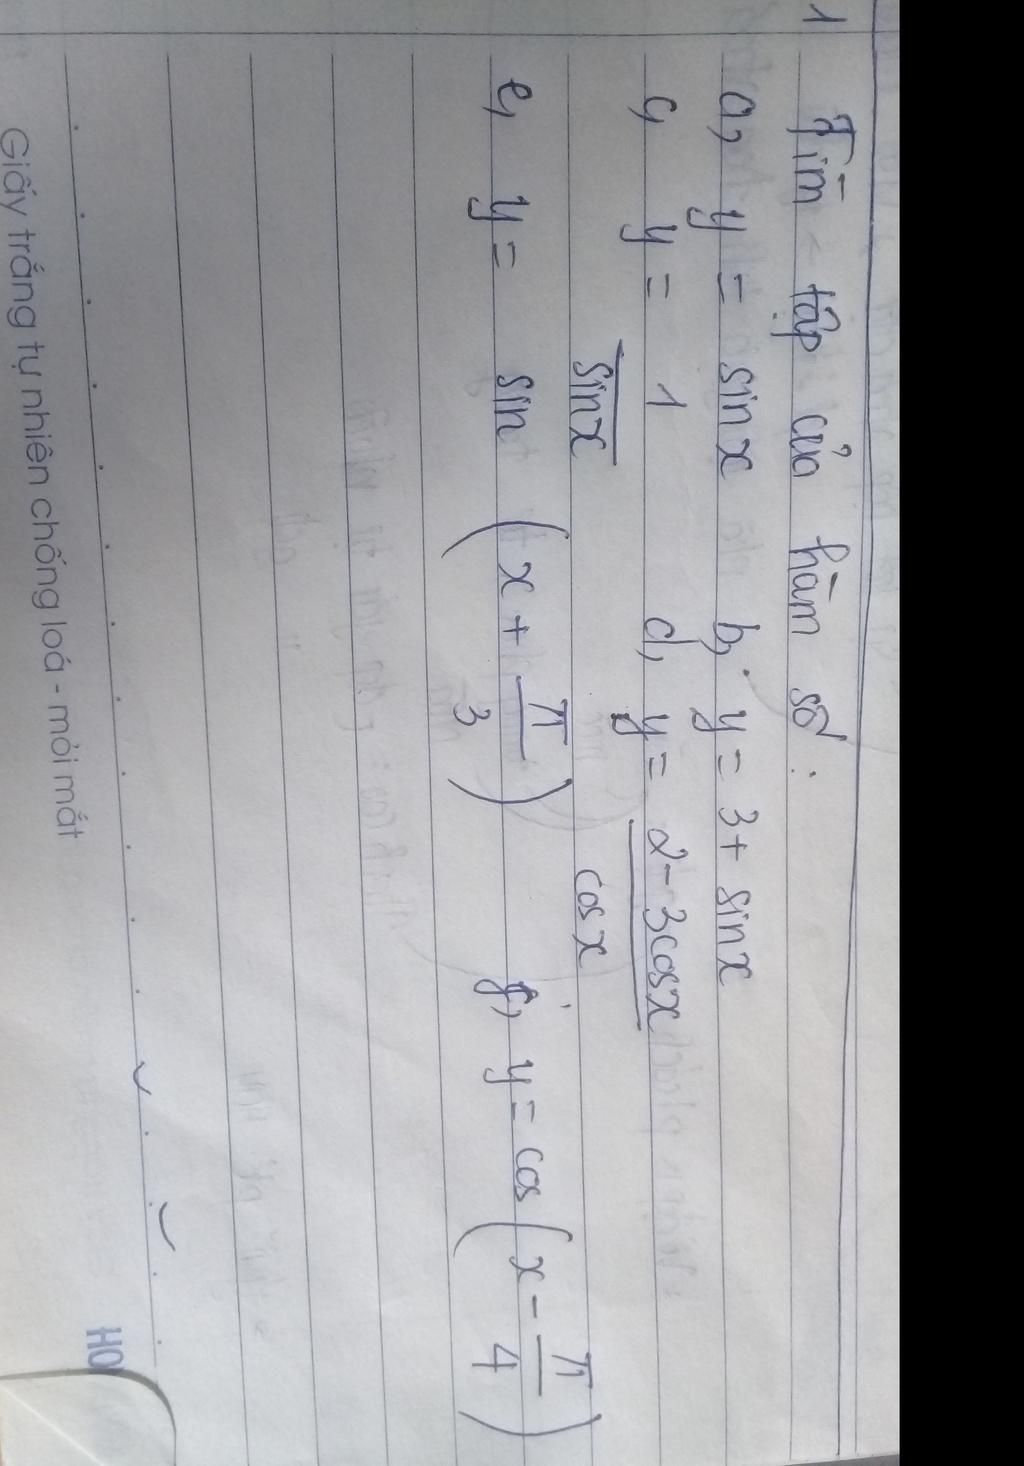 1
Tìm tập của hàm số :
a, y = sin x b, y = 3 + sin x
c, y = 1 d, y = 2 - 3cos x
sin x cos x
e, y = sin ( x + π/3 ) f, y = cos ( x - π/4 )
Giấy trắng tự nhiên chống loá - mỏi mắt
HO